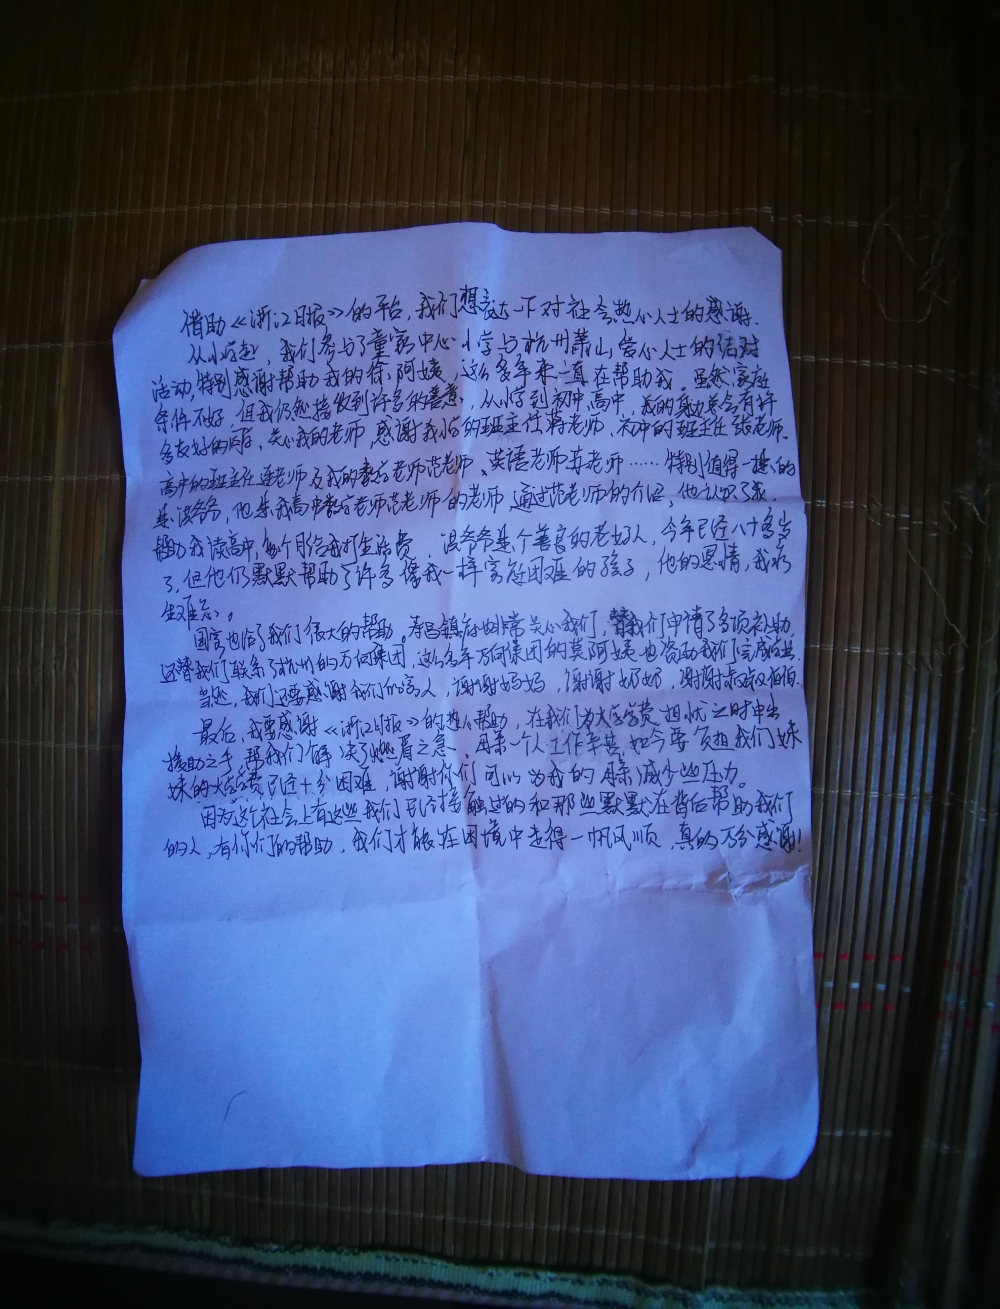 借助《浙江日报》的平台，我们想表达一下对社会热心人士的感谢.
从小学起，我们参与了童家中心小学与杭州萧山爱心人士的结对
活动,特别感谢帮助我的徐阿姨，这么多年来一直在帮助我。虽然家庭
条件不好,但我仍然接收到许多的善意，从小学到初中,高中，我的身边总会有许
多友好的同学、关心我的老师,感谢我小学的班主任蒋老师、初中的班主任张老师、
高中的班主任 老师及我的数学老师范老师、英语老师苏老师……特别值得一提的
是 爷爷，他是我高中数学老师范老师的老师,通过范老师的介绍，他认识了我，
帮助我读高中,每个月给我打生活费， 爷爷是个善良的老好人，今年已经八十多岁
了,但他仍默默帮助了许多像我一样家庭困难的孩子，他的恩情，我永
生难忘。
国家也给了我们很大的帮助。寿昌镇府也非常关心我们，替我们申请了多项补助，
还替我们联系了杭州的万向集团，这么多年万向集团的莫阿姨也资助我们完成学业.
当然，我们还要感谢我们的家人，谢谢妈妈，谢谢奶奶，谢谢叔叔伯伯.
最后，我要感谢《浙江日报》的热心帮助，在我们为大学学费担忧之时伸出
援助之手,帮我们解决了燃眉之急。母亲一个人工作辛苦,如今要负担我们姐
妹的大学学费已经十分困难，谢谢你们可以为我的母亲减少些压力。
因为这个社会上有这些我们已经接触过的和那些默默在背后帮助我们
的人,有你们的帮助，我们才能在困境中走得一帆风顺，真的万分感谢!